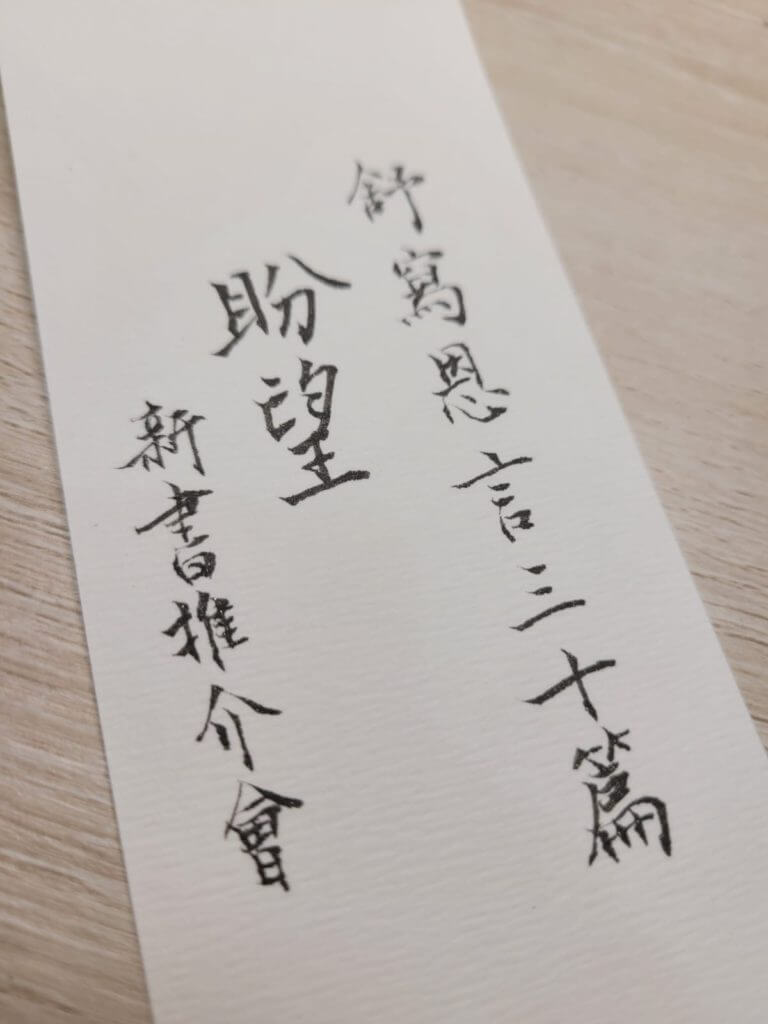 舒寫恩言三十篇
盼望
新書推介會